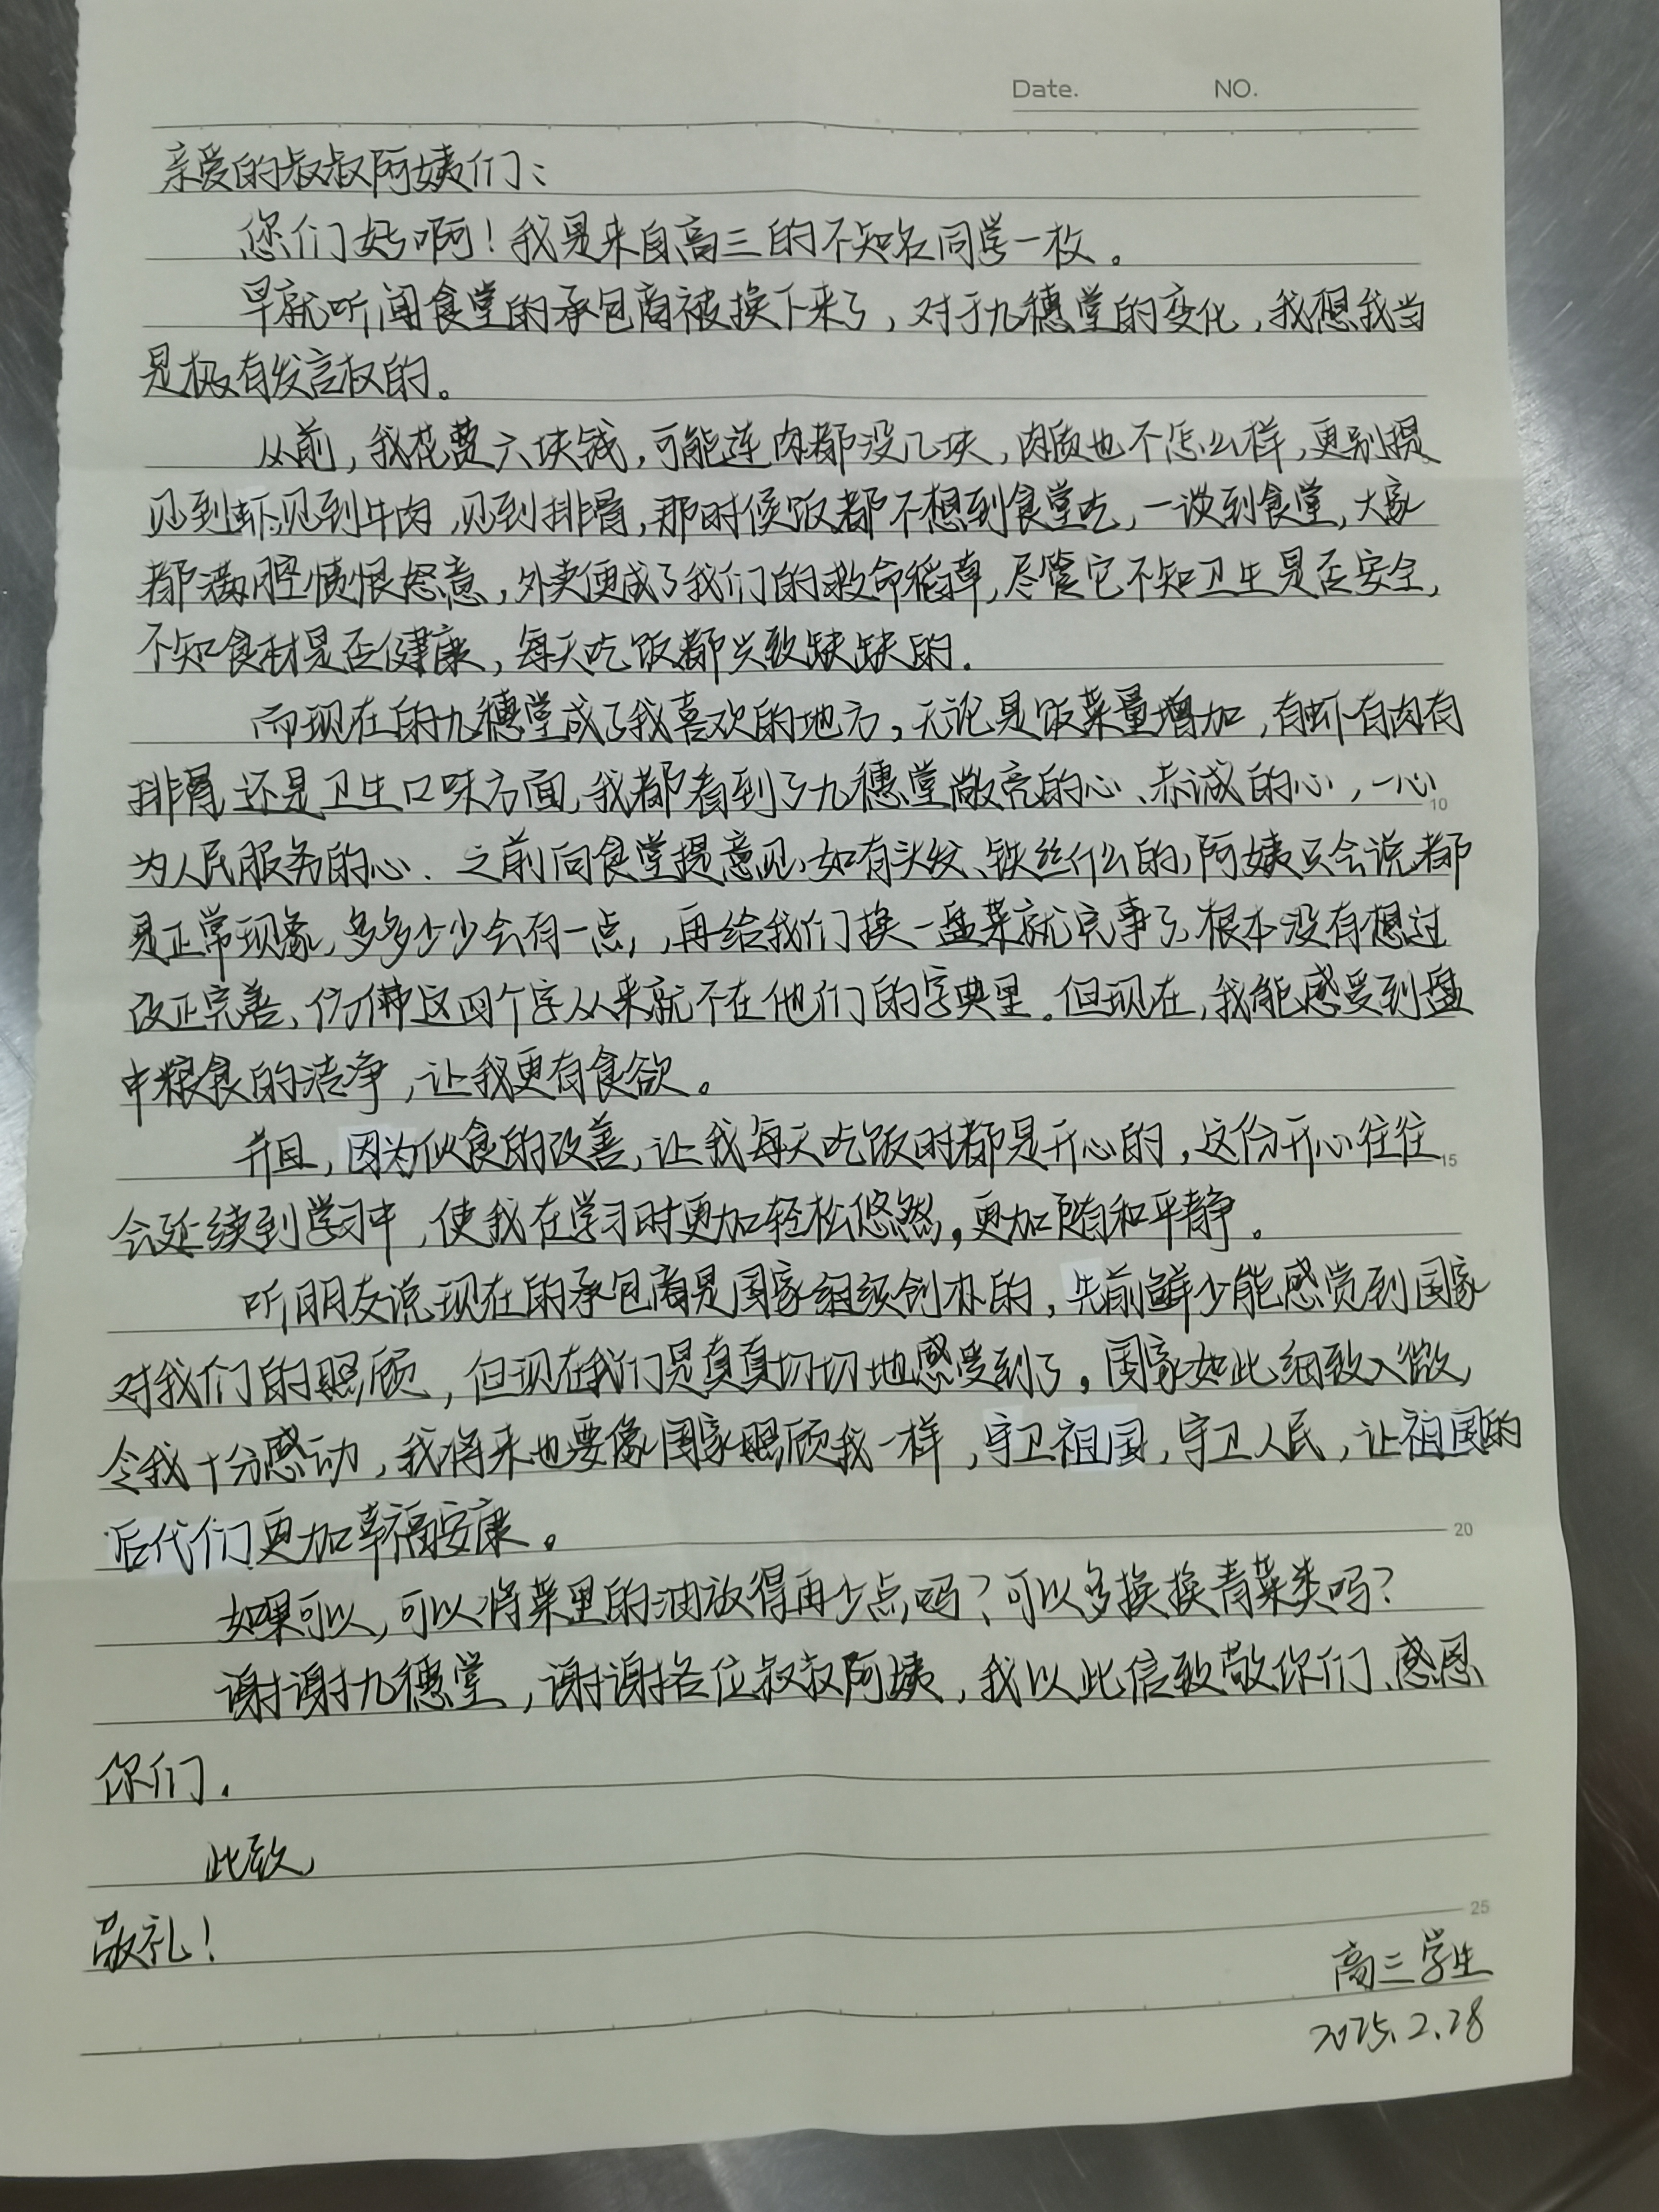 Date. NO.
亲爱的叔叔阿姨们:
您们好啊!我是来自高三的不知名同学一枚。
早就听闻食堂的承包商被换下来了,对于九穗堂的变化,我想我当
是极有发言权的。
从前,我花费六块钱,可能连肉都没几块,肉质也不怎么样,更别提
见到虾,见到牛肉,见到排骨,那时候饭都不想到食堂吃,一谈到食堂,大家
都满腔愤恨怒意,外卖便成了我们的救命稻草,尽管它不知卫生是否安全,
不知食材是否健康,每天吃饭都兴致缺缺的.
而现在的九穗堂成了我喜欢的地方,无论是饭菜量增加,有虾有肉有
排骨 还是卫生口味方面,我都看到了九穗堂敞亮的心、赤诚的心,一心
10
为人民服务的心. 之前向食堂提意见,如有头发、铁丝什么的,阿姨只会说都
是正常现象,多多少少会有一点,,再给我们换一盘菜就完事了,根本没有想过
改正完善,仿佛这四个字从来就不在他们的字典里。但现在,我能感受到盘
中粮食的洁净,让我更有食欲。
并且,因为伙食的改善,让我每天吃饭时都是开心的,这份开心往往
15
会延续到学习中,使我在学习时更加轻松悠然,更加随和平静。
听朋友说现在的承包商是国家组织创办的,先前鲜少能感觉到国家
对我们的照顾,但现在我们是真真切切地感受到了,国家如此细致入微,
令我十分感动,我将来也要像国家照顾我一样,守卫祖国,守卫人民,让祖国的
后代们更加幸福安康。
20
如果可以,可以将菜里的油放得再少点吗?可以多换换青菜类吗?
谢谢九穗堂,谢谢各位叔叔阿姨,我以此信致敬你们、感恩
你们.
此致,
25
敬礼!
高三学生
2025.2.28